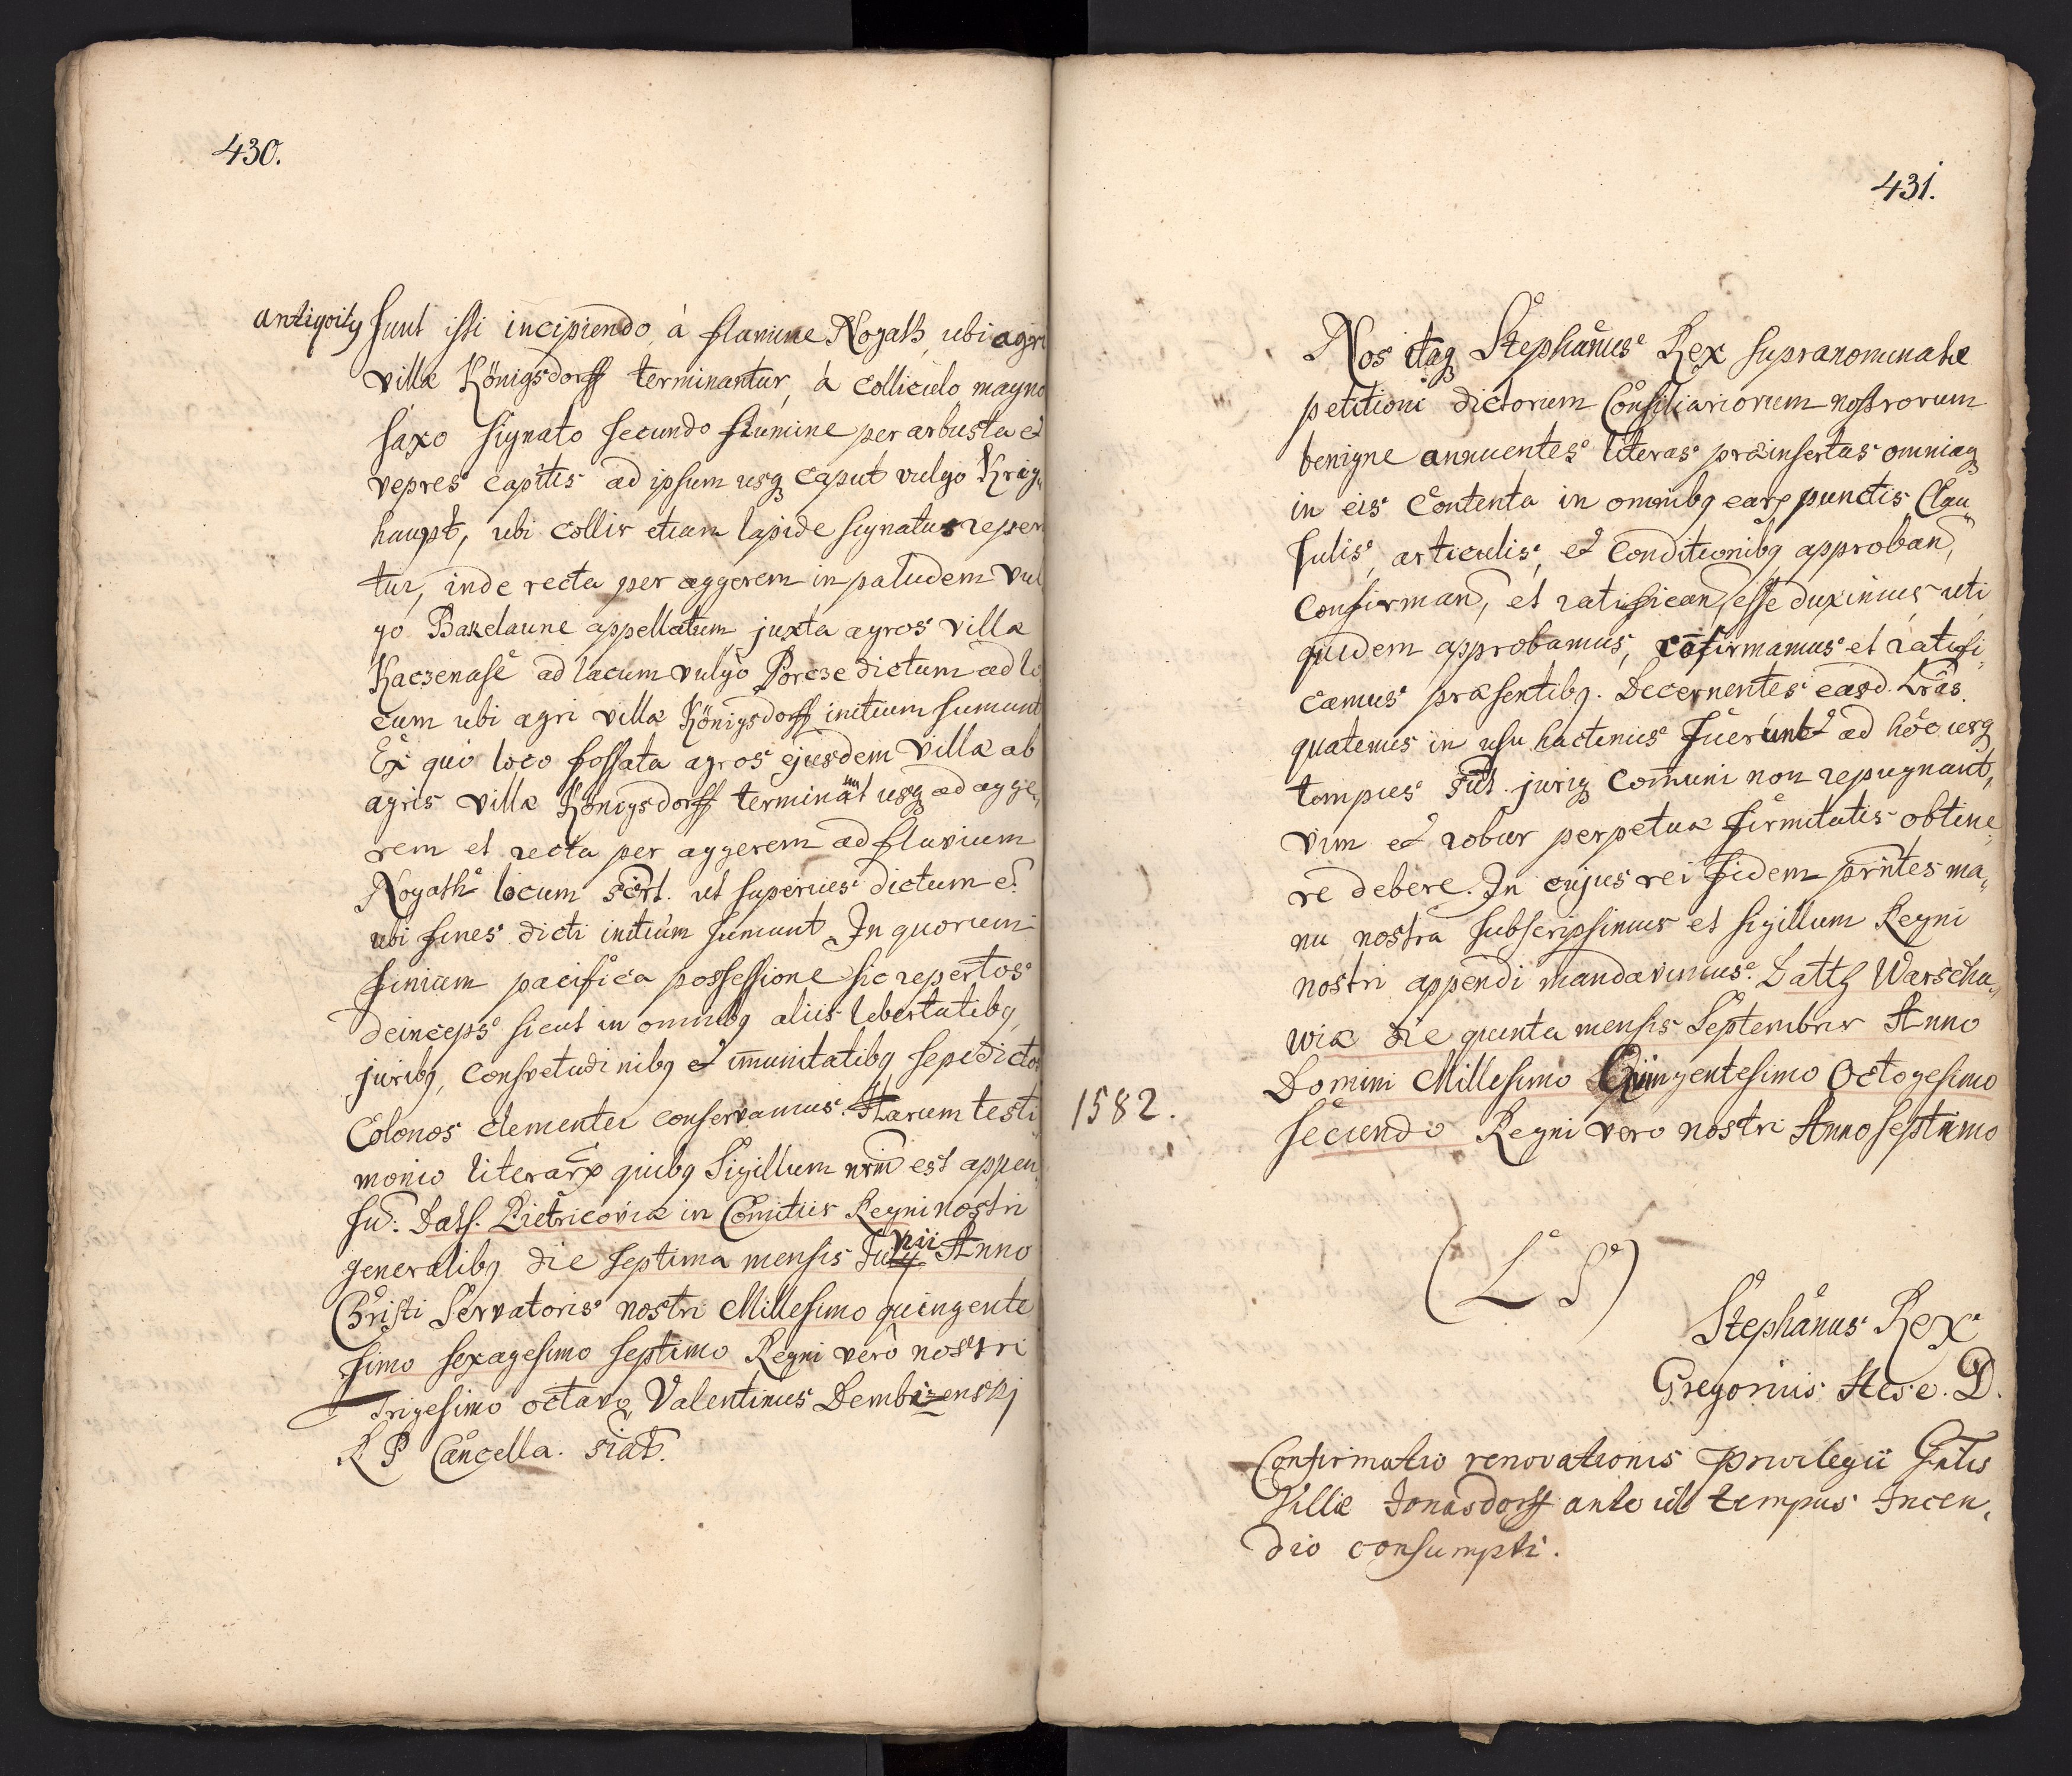 430.
antiqoitq sunt isti incipiendo, à flamine Nogath, ubi agri
villæ Königsdorff terminantur, à colliculo magno
saxo signato secundo flumine per arbusta et
vepres capitis ad ipsum usq caput vulgo Krieg„
haupt, ubi collis etiam lapide signatus reperi
tur, inde recta per aggerem in paludem vul
go Bakelaune appellatum juxta agros villæ
Kaczenase ad lacum vulgo Porcze dictum ad lo
cum ubi agri villæ Königsdorff initium sumunt
Ex quo loco fossata agros ejusdem villæ ab
agris villæ Königsdorff terminant usq ad agge„
rem et recta per aggerem ad fluvium
Nogath locum sčrt. ut superius dictum e.
ubi fines dicti initium sumunt. In quorum
finium pacifica possessione sic repertos
deinceps sicut in omnibq aliis libertatibq,
juribq, consvetudinibq et im̄unitatibq sepedictos
Colonos clementer conservamus. Harum testi
monio literarꝝ quibq Sigillum nrm̄ est appen
su. Dats. Pietricoviæ in Comitiis Regni nostri
generalibq die septima mensis Junii Anno
Christi Servatoris nostri Millesimo quingente
simo sexagesimo septimo Regni vero nostri
Trigesimo octavo, Valentinus Dembienskj
R P Cancella.
431.
Nos itaq Stephanus Rex supranominatæ
petitioni dictorum Consiliariorum nostrorum
benigne annuentes literas præinsertas omniaq
in eis contenta in omnibq earꝝ punctis, Clau„
sulis, articulis, et conditionibq approban,
confirman, et ratifican, esse duximus uti
quidem approbamus, cōfirmamus et ratifi„
camus præsentibq. Decernentes easd. Lrās.
quatenus in usu hactenus fuerunt et ad hoc usq
tempus sūt. juriq com̄uni non repugnant,
vim et robur perpetuæ firmitatis obtine„
re debere. In cujus rei fidem prn̄tes ma„
nu nostra subscripsimus et sigillum Regni
nostri appendi mandavimus. Dattq Warscha„
wiæ die quinta mensis Septembris Anno
Domini Millesimo Quingentesimo Octogesimo
1582. secundo Regni vero nostri Anno septimo
(L S)
Stephanus Rex
Gregorius Hese. D.
Confirmatio renovationis privilegii
Villæ Jonasdorff ante id tempus Incen„
dio consumpti.